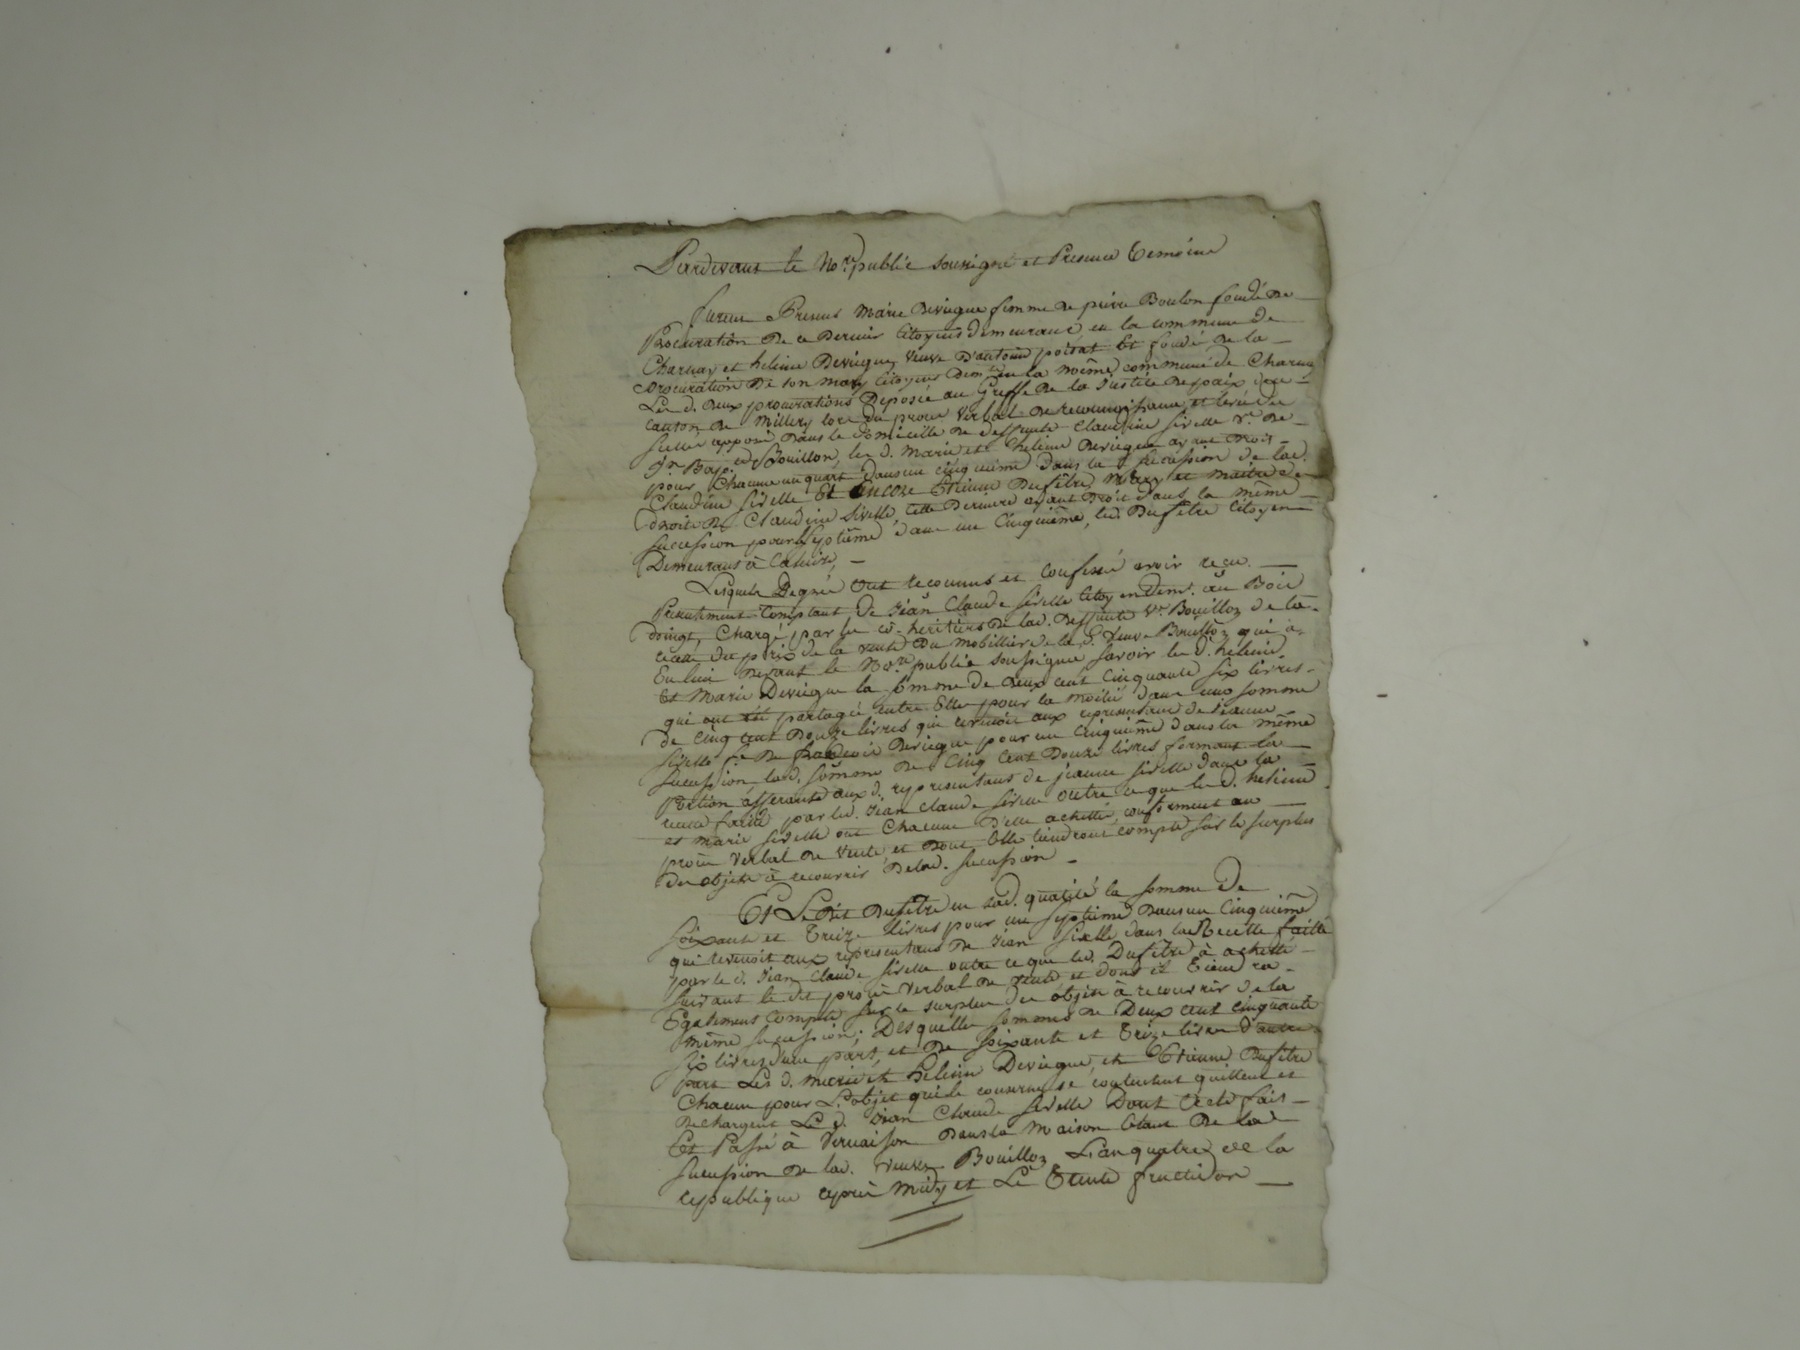 Pardevant le No.re public soussigné et Presence temoins
furent Presents Marie Devieque femme de pierre Boulon fondé de
Procuration de ce Dernier Citoyens demeurant en la commune de
Charnay et helenne Devieque veuve d'antoine poizat Et fondé de la
procuration de son mary Citoyens Dem.te en la même commune de Charnay
Les d. deux procurations Deposée au Greffe de la Justice de paix du
canton de Millery lors du proces Verbal de reconnoissance et levée de
scellé apposé dans le domicille de deffunte Claudine sivelle v.e de
Jn. Bap. Bouillon, les d. Marie et helenne Devieque ayant droit
pour Chacune un quart dans un cinquieme dans la succession de lad.
Claudine sivelle Et encore Etienne Dufêtre Mary et maitre des
droits de Claudine sivelle, cette Derniere ayant Droit dans la même
succession pour septieme dans un Cinquième, led. Dufêtre Citoyen
Demeurant à Caluire,
Lesquels Degrée Ont reconnus et Confessé avoir reçu
Presentement Comptant de Jean Claude sivelle Citoyen Dem.t au Bois
doingt, Chargé par les co-heritiers de lad. deffunte V.e Bouillon de la
recette du prix de la vente du mobillier de la d. Veuve Bouillon qui a
Eu lieu devant le No.re public soussigné savoir les d. helenne
Et Marie Devieque la somme de deux cent Cinquante six livres
qui ont été partagé entre Elle pour la moitié dans une somme
de Cinq Cent Douze livres qui revenoit aux representans de jeanne
sivelle f.e de Devieque pour un Cinquième dans la même
succession lad. sommme de Cinq Cent Douze livres formant la
Portion afferante aux d. representans de jeanne sivelle dans la
recette faitte par led. Jean Claude sivelle outre ce que les d. helenne
et Marie sivelle ont Chacune d'elle achetté, conformement au
procès Verbal de Vente, et dont Elle tiendront compte sur le surplus
des objets à recouvrir Delad. succession
Et Le Dit Dufêtre en sad. qualité la somme De
soixante et Treize livres pour un septieme Dans un Cinquième
qui revenoit aux representans de Jean sivelle dans la Recette faitte
par le d. Jean Claude sivelle outre ce que led. Dufêtre à achetté
suivant le dit procès Verbal de Vente et dont il tiendra
Egalement Compte sur le surplus des objets à recouvrir de la
même succession; Desquelles sommes de Deux cent cinquante
six livres d'une part, et de soixante et Treize livres d'autre
part Les d. Marie et helenne Devieque, et Etienne Dufêtre
Chacun pour L'objet qui le concerne se contentent quittent et
dechargent Le d. Jean Claude sivelle Dont Acte fait
Et Passé à Vernaison Dans la Maison Etant De la
succession de lad. veuve Bouillon L'an quatre de la
republique après Midy et Le Trente fructidor